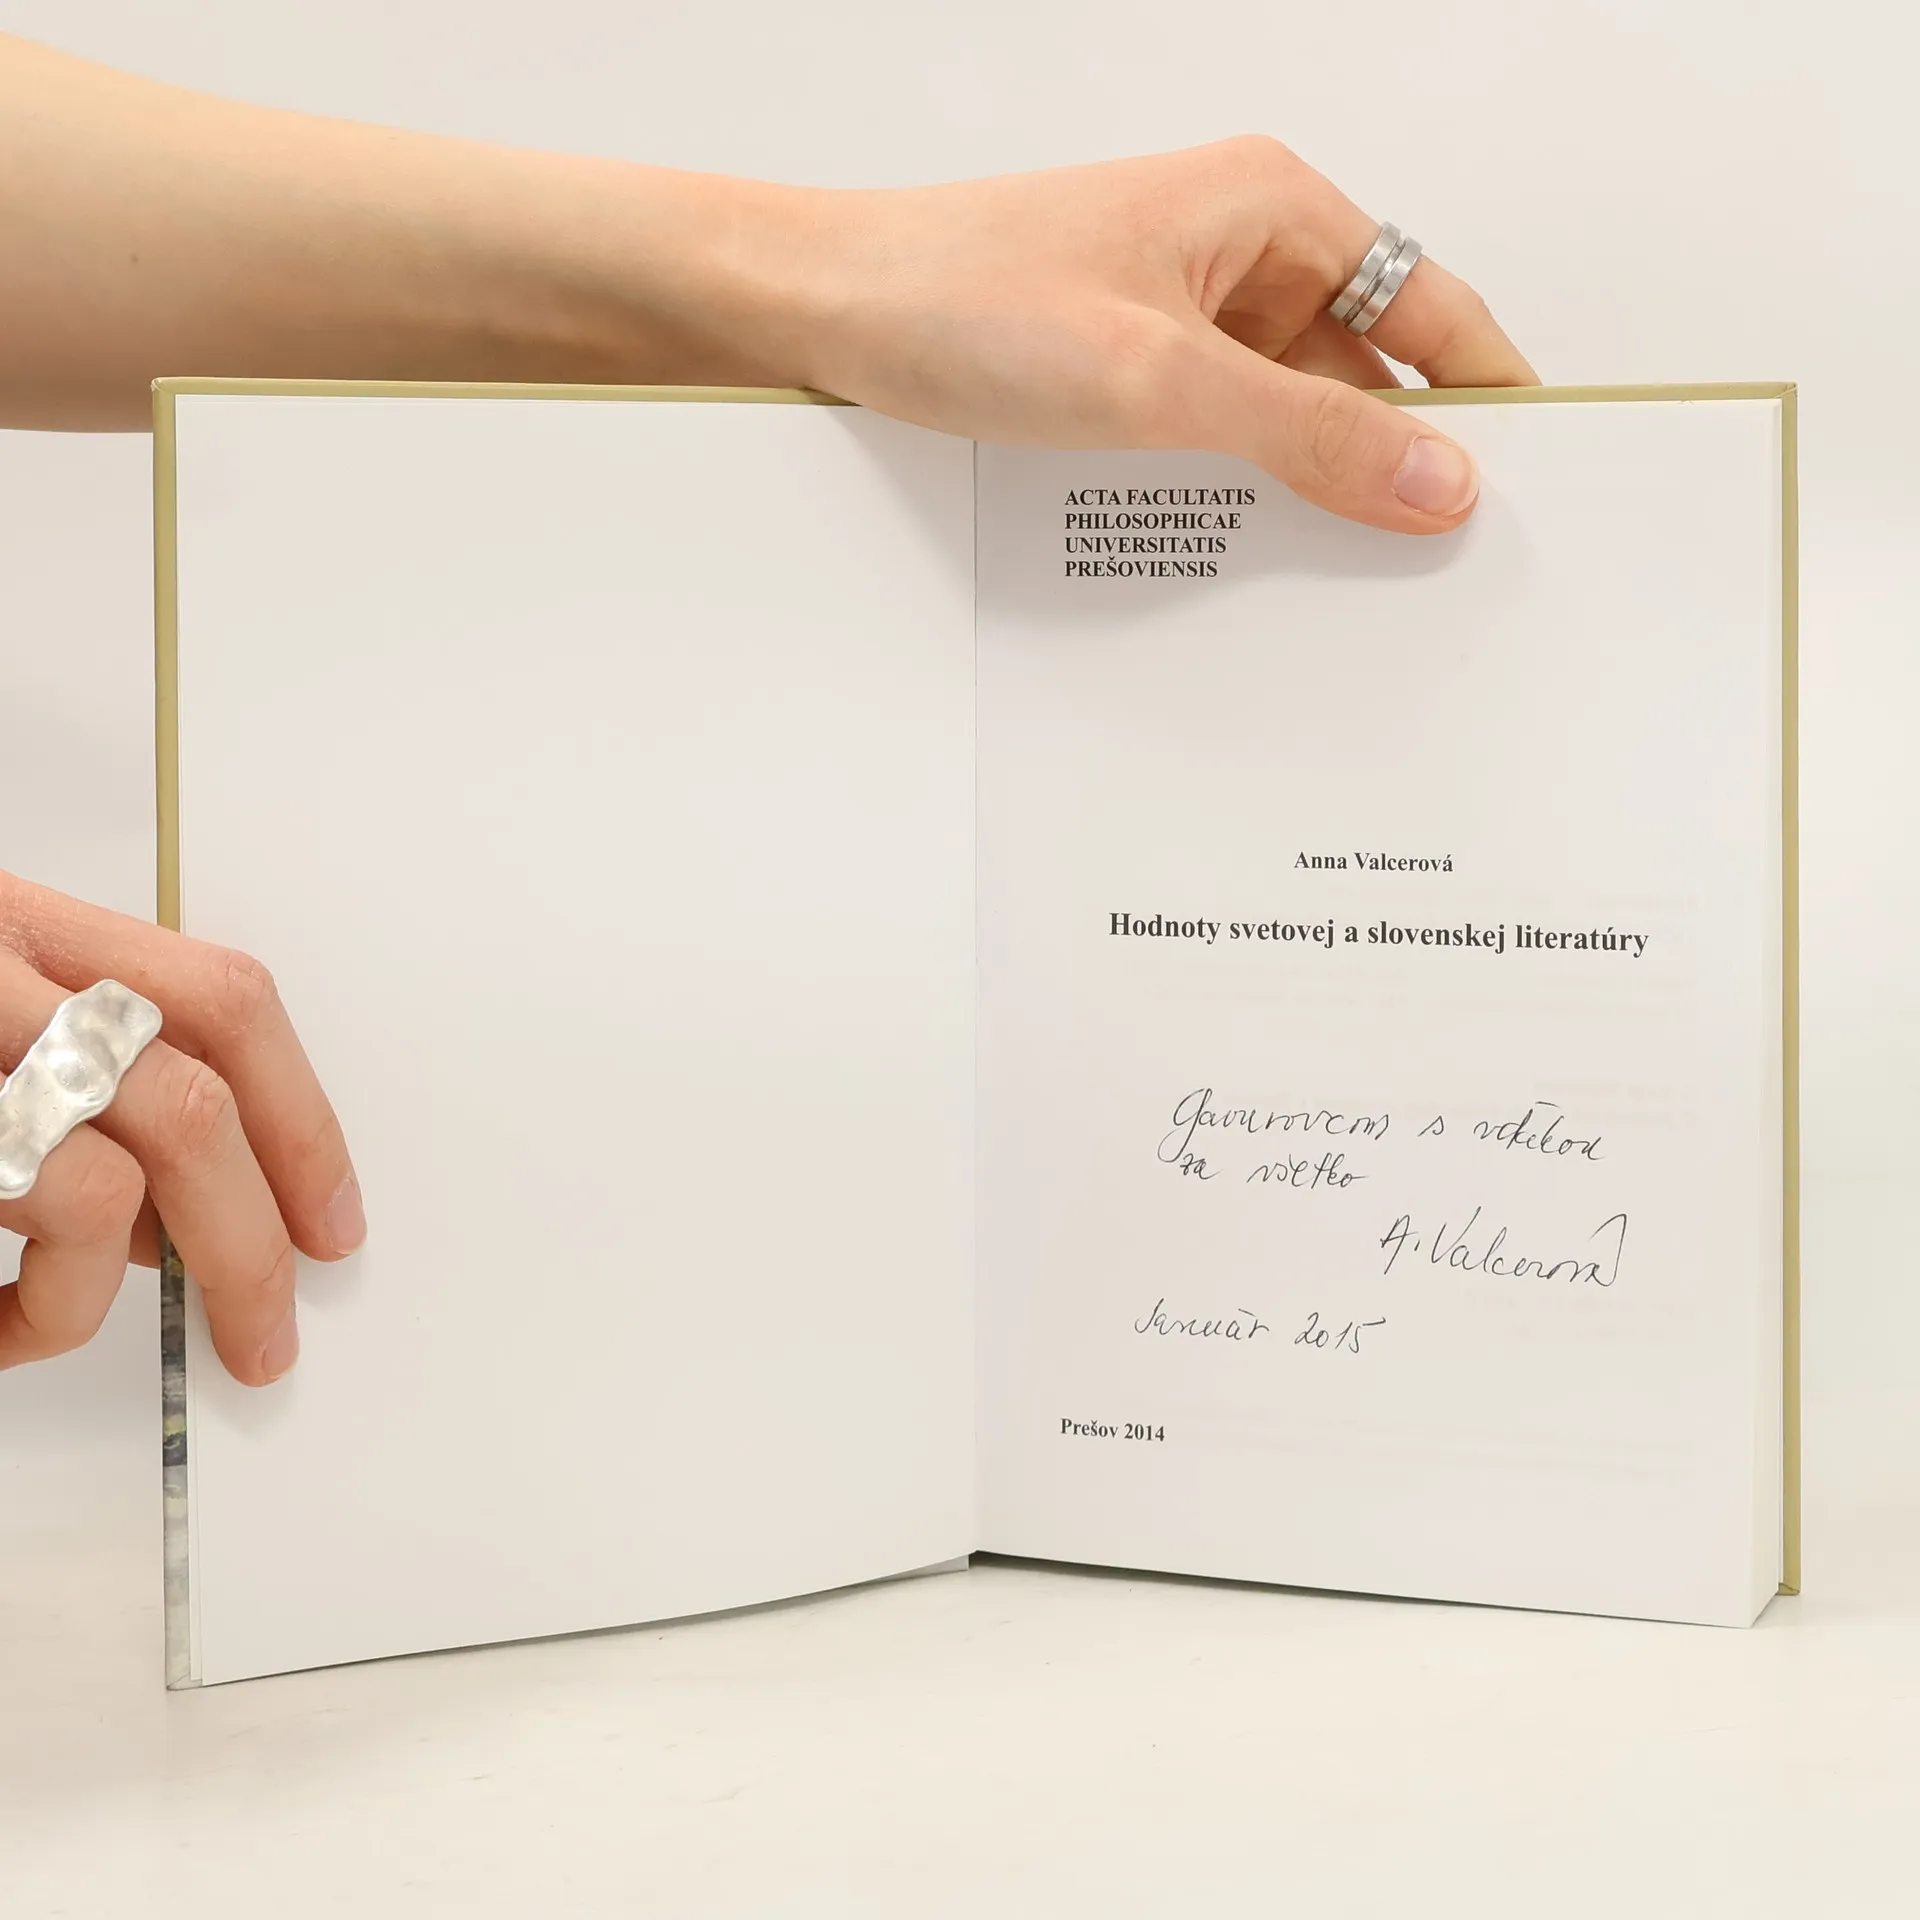 ACTA FACULTATIS
PHILOSOPHICAE
UNIVERSITATIS
PREŠOVIENSIS
Anna Valcerová
Hodnoty svetovej a slovenskej literatúry
s vďakou
za všetko
A. Valcerová
Január 2015
Prešov 2014